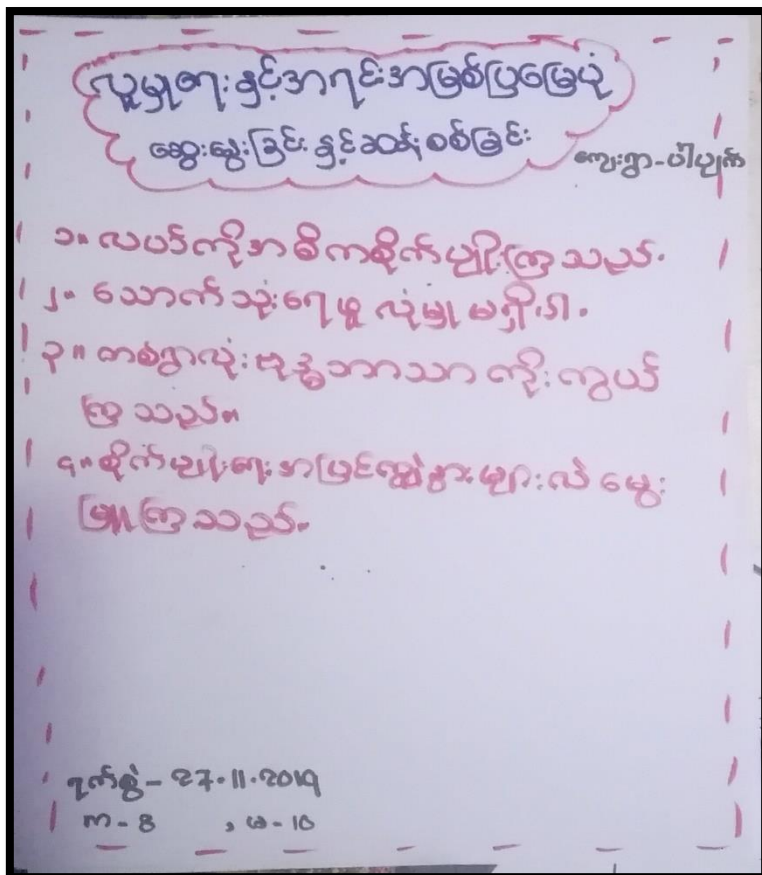 လူမှုရေးနှင့်အရင်းအမြစ်ပြမြေပုံ
ဆွေးနွေးခြင်းနှင့်ဆန်းစစ်ခြင်း
ကျေးရွာ-ပါပျက်
၁။ လယ်ကိုအဓိကစိုက်ပျိုးကြသည်.
၂။ သောက်သုံးရေဖူလုံမှုမရှိပါ.
၃။ တစ်ရွာလုံးဗုဒ္ဓဘာသာကိုးကွယ်
ကြသည်။
၄။ စိုက်ပျိုးရေးအပြင်ကျွဲနွားများလဲမွေး
မြူကြသည်.
ရက်စွဲ- 27.11.2019
က-8 , မ-10